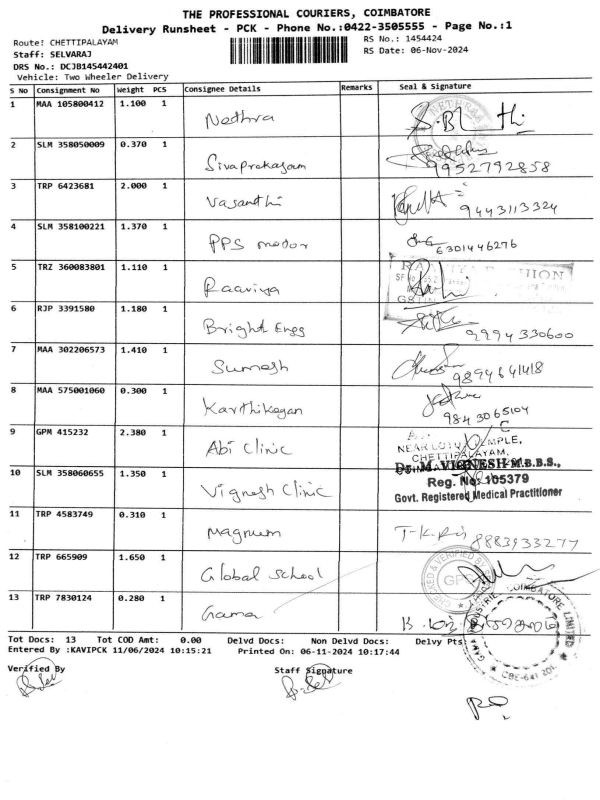 THE PROFESSIONAL COURIERS, COIMBATORE
Delivery Runsheet - PCK - Phone No.:0422-3505555 - Page No.:1
Route: CHETTIPALAYAM RS No.: 1454424
Staff: SELVARAJ RS Date: 06-Nov-2024
DRS No.: DCJB145442401
Vehicle: Two Wheeler Delivery
S No Consignment No Weight PCS Consignee Details Remarks Seal & Signature
1 MAA 105800412 1.100 1 Nethra
2 SLM 358050009 0.370 1 Sivaprakasam 9952792858
3 TRP 6423681 2.000 1 Vasanthi 9443113324
4 SLM 358100221 1.370 1 PPS motor 6301446276
5 TRZ 360083801 1.110 1 Raaviya
6 RJP 3391580 1.180 1 Bright Engg 9994330600
7 MAA 302206573 1.410 1 Sumesh 9894641418
8 MAA 575001060 0.300 1 Karthikeyan 9843065104
9 GPM 415232 2.380 1 Abi Clinic
CHETTIPALAYAM,
10 SLM 358060655 1.350 1 Vignesh Clinic
Dr. M. VIGNESH M.B.B.S.,
Reg. No: 105379
Govt. Registered Medical Practitioner
11 TRP 4583749 0.310 1 Magnum 8883933277
12 TRP 665909 1.650 1 Global School
13 TRP 7830124 0.280 1 Gama
COIMBATORE LIMITED
CBE-641 201.
Tot Docs: 13 Tot COD Amt: 0.00 Delvd Docs: Non Delvd Docs: Delvy Pts:
Entered By :KAVIPCK 11/06/2024 10:15:21 Printed On: 06-11-2024 10:17:44
Verified By Staff Signature